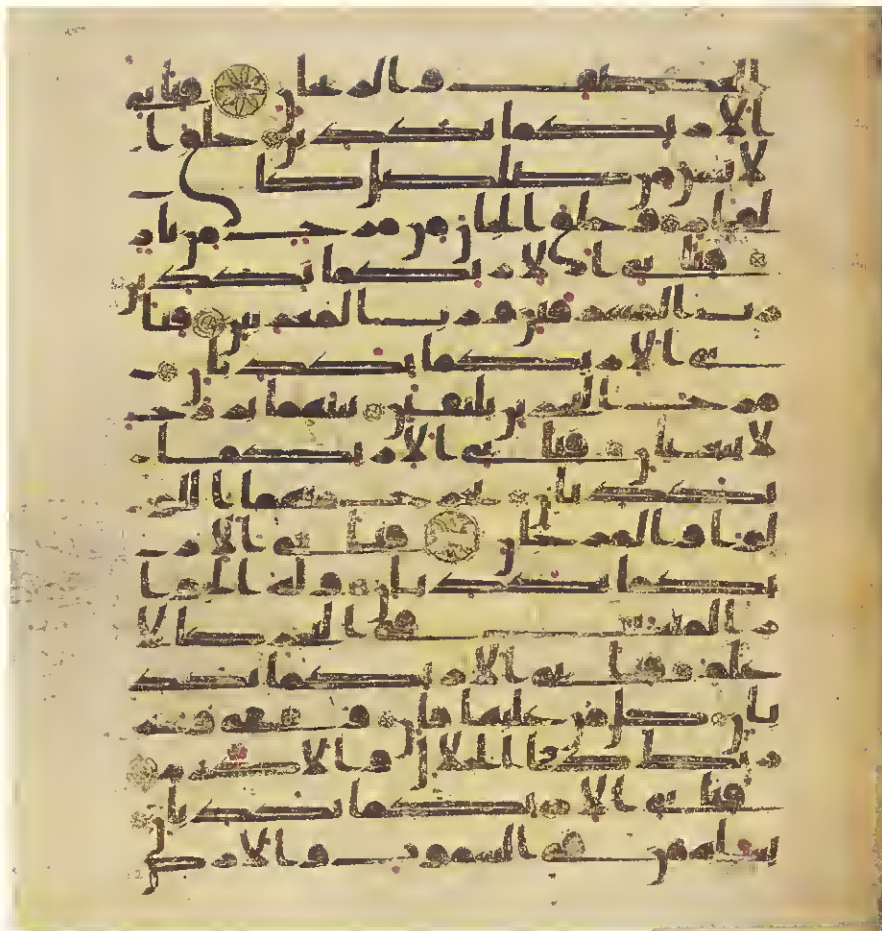 العصف والريحان فباي
الا ربكما تكذبن خلق ا
لانسن من صلصل كا
لفخار وخلق الجان من مرج من نار
فباي الا ربكما تكذبن
رب المشرقين ورب المغربين فبا
ي الا ربكما تكذبان
مرج البحرين يلتقين بينهما برزخ
لا يبغيان فباي الا ربكما
تكذبان يخرج منهما اللو
لوا والمرجان فباي الا ر
بكما تكذبان وله الجوا
ر المنشات في البحر كالا
علم فباي الا ربكما تكذ
بان كل من عليها فان ويبقى وجه
ربك ذو الجلل والاكرم
فباي الا ربكما تكذبان
يسله من في السموت والارض